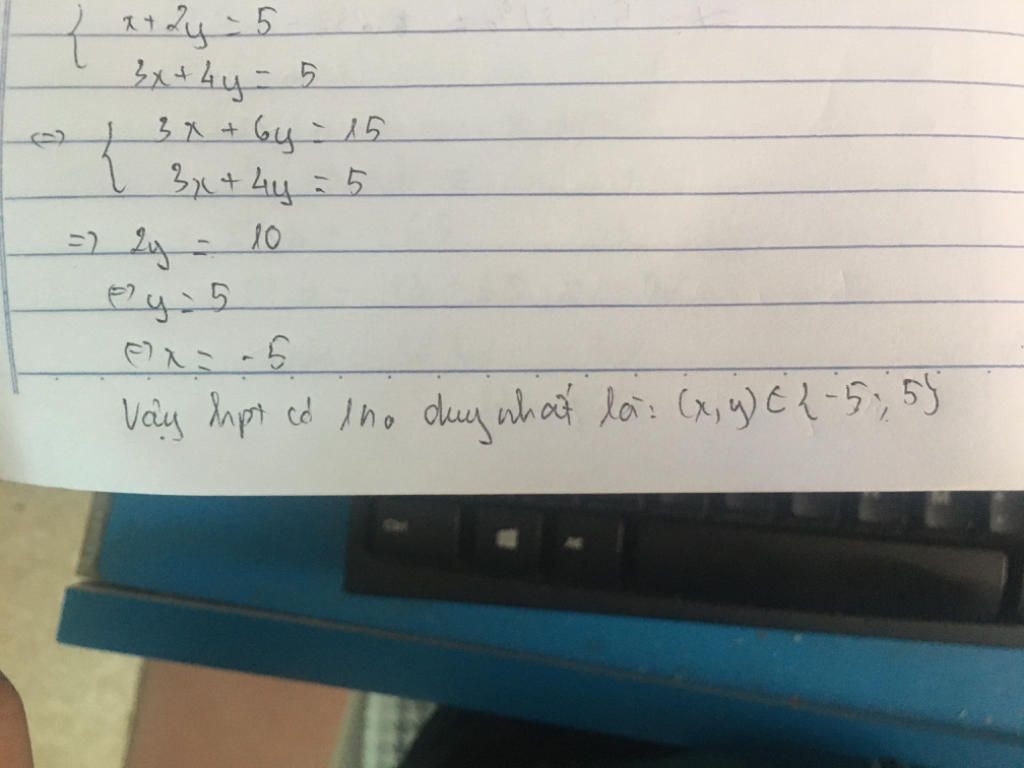 { x + 2y = 5
3x + 4y = 5
<=> { 3x + 6y = 15
3x + 4y = 5
=> 2y = 10
<=> y = 5
<=> x = -5
Vậy hpt có 1 no duy nhất là: (x, y) ∈ {-5; 5}